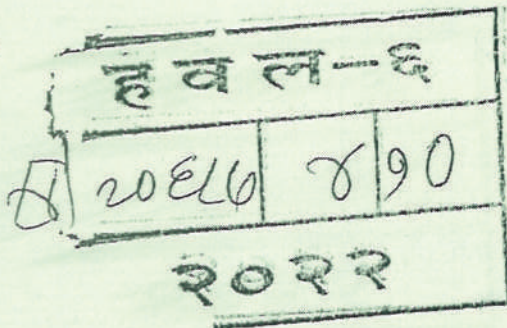 ह व ल-६
२०६८७ ४ १०
२०२२